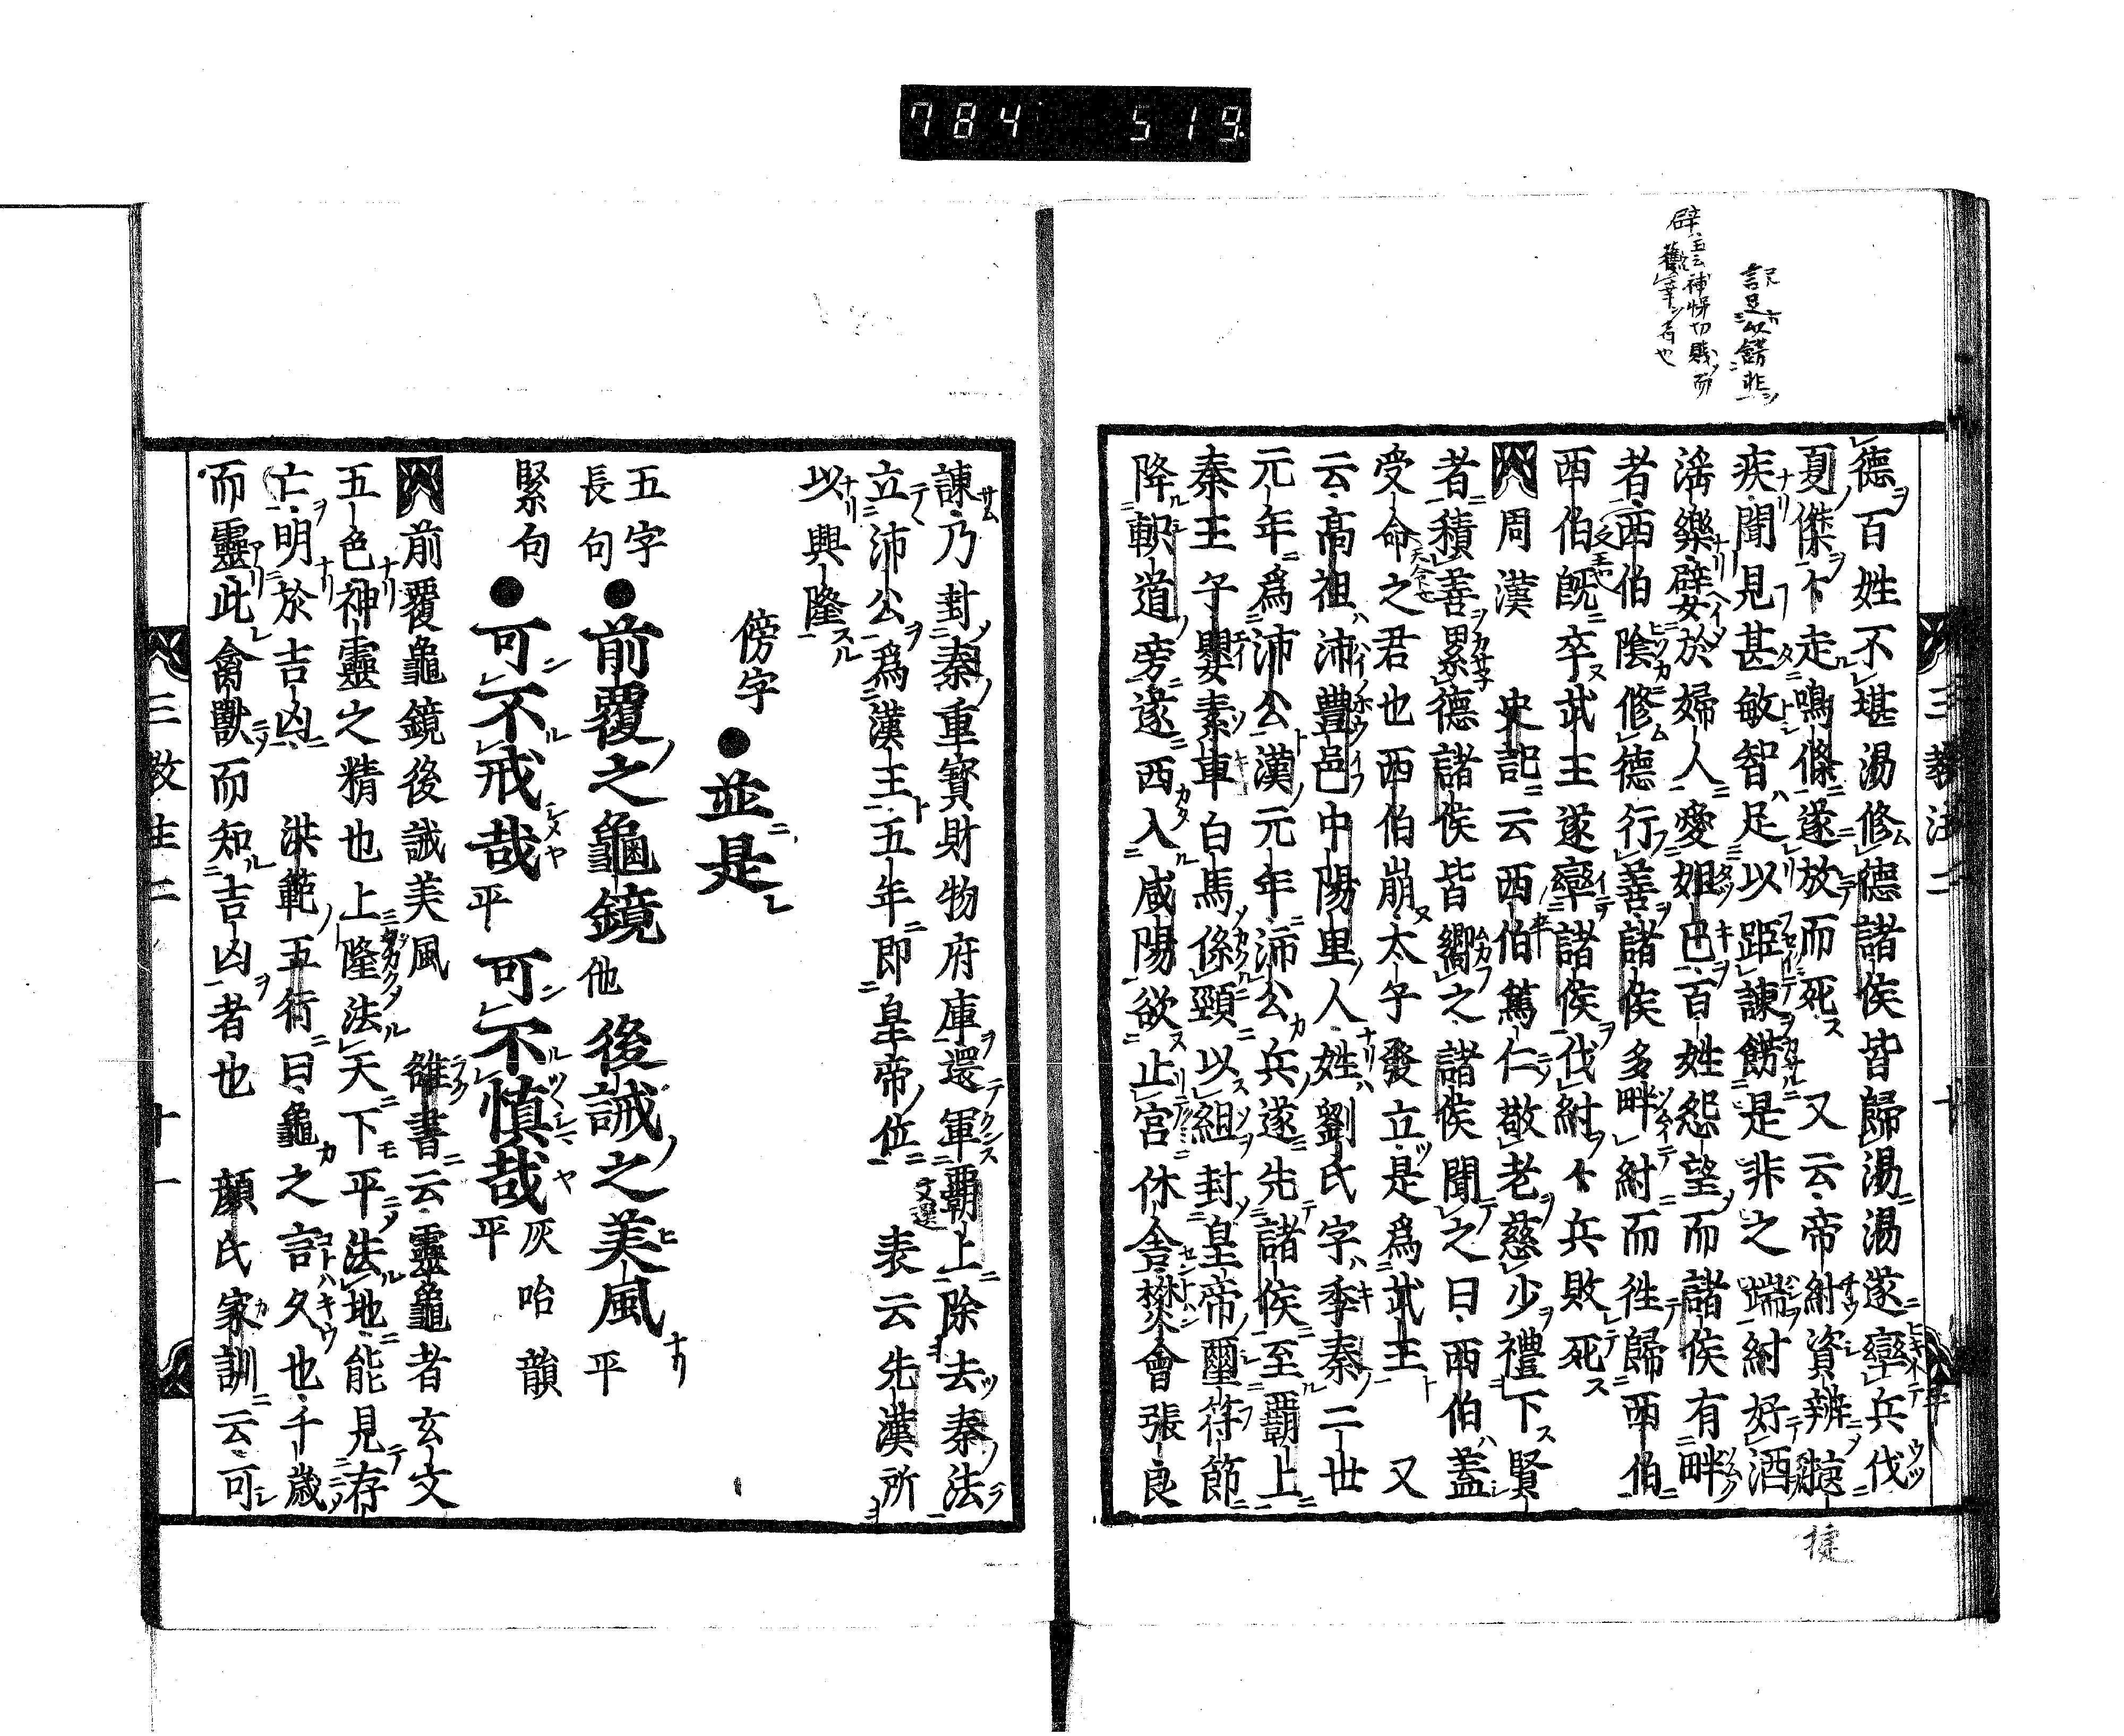 784 519
德百姓不堪湯修德諸侯皆歸湯湯遂率兵伐
夏傑卜走鳴條遂放而死 又云帝紂資辨
疾聞見甚敏智足以距諫餝是非之端紂好酒
滛樂嬖於婦人愛妲己百姓怨望而諸侯有畔
者西伯陰修德行善諸侯多畔紂而徃歸西伯
西伯既卒武王遂率諸侯伐紂々兵敗死
周漢 史記云西伯篤仁敬老慈少禮下賢
者積善累德諸侯皆嚮之諸侯聞之曰西伯蓋
受命之君也西伯崩太子發立是爲武王 又
云高祖沛豊邑中陽里人姓劉氏字季秦二世
元年爲沛公漢元年沛公兵遂先諸侯至覇上
秦王子嬰素車白馬係頸以組封皇帝璽符節
降軹道旁遂西入咸陽欲止宮休舎樊會張良
諫乃封秦重寳財物府庫還軍覇上除去秦法
立沛公爲漢王五年即皇帝位 文選 表云先漢所
以興隆
傍字 ●並是
五字
長句 ●前覆之龜鏡 他 後誡之美風 平
緊句 ●可不戒哉 平 可不慎哉 平 灰咍韻
前覆龜鏡後誡美風 雒書云靈龜者玄文
五色神靈之精也上隆法天下平法地能見存
亡明於吉凶 洪範五行曰龜之言久也千歳
而靈此禽獸而知吉凶者也 顔氏家訓云可
三教注二 十一